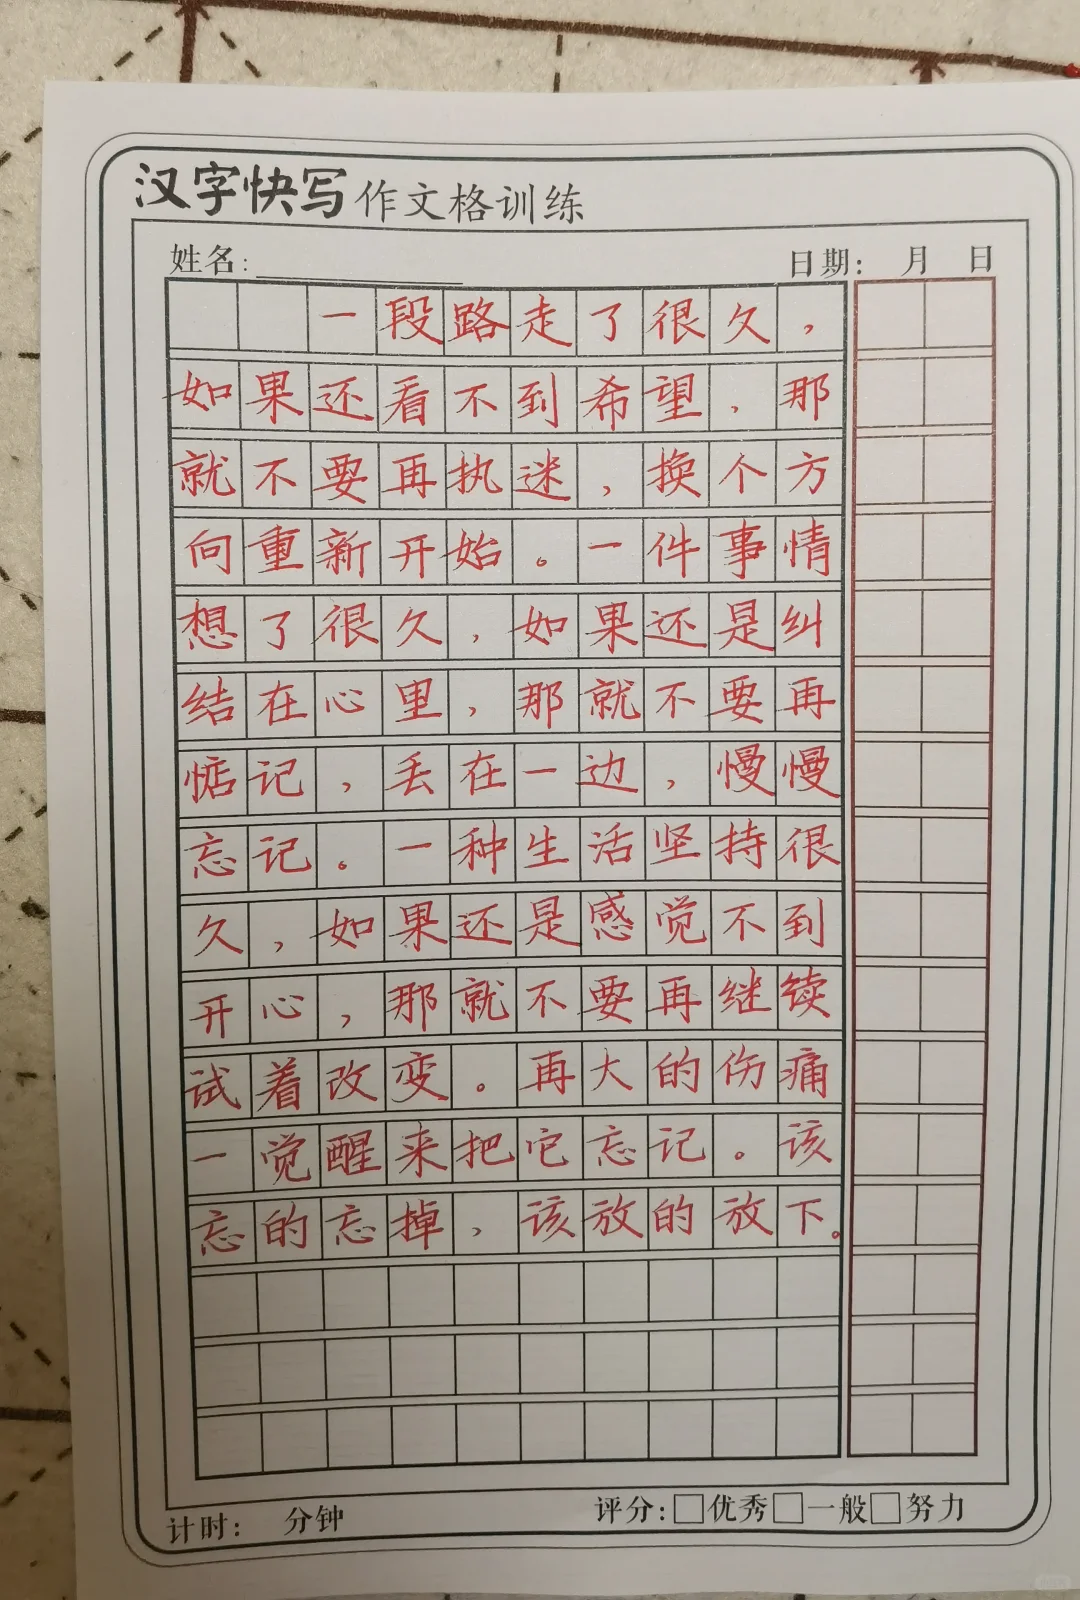 汉字快写作文格训练
姓名: 日期: 月 日
一段路走了很久，
如果还看不到希望，那
就不要再执迷，换个方
向重新开始。一件事情
想了很久，如果还是纠
结在心里，那就不要再
惦记，丢在一边，慢慢
忘记。一种生活坚持很
久，如果还是感觉不到
开心，那就不要再继续
试着改变。再大的伤痛
一觉醒来把它忘记。该
忘的忘掉，该放的放下。
计时: 分钟 评分:□优秀□一般□努力